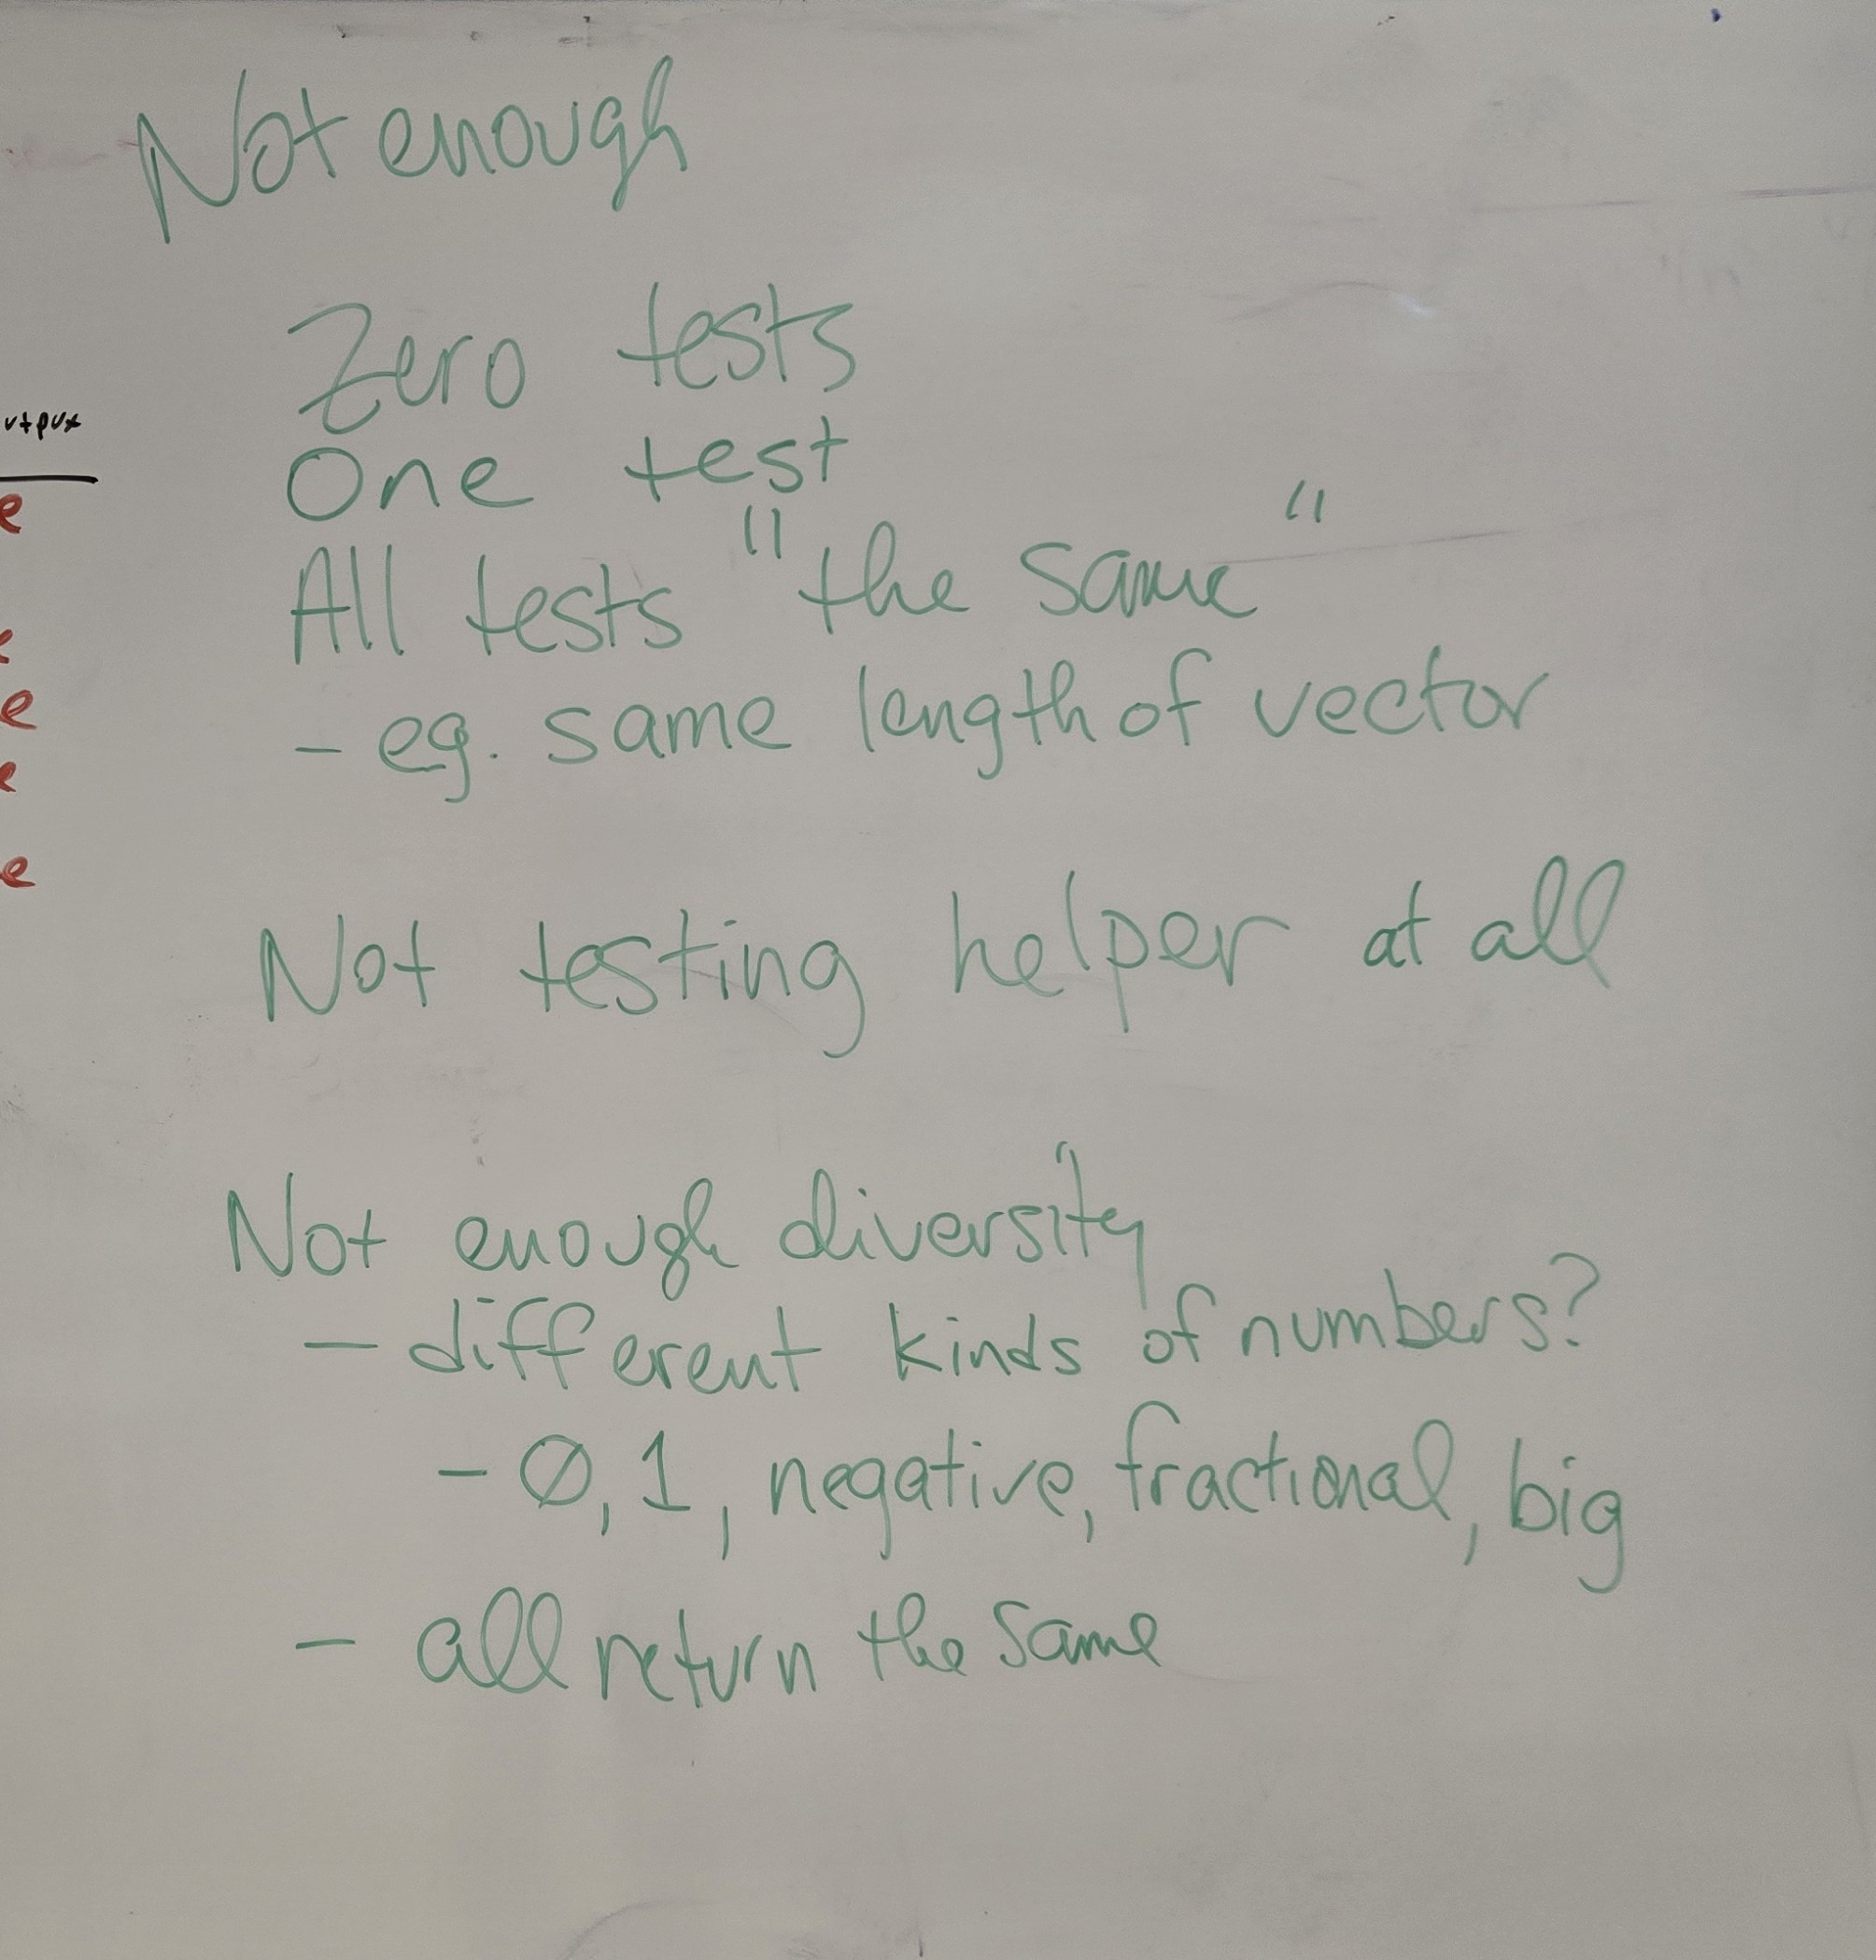 Not enough
Zero tests
One test
All tests "the same"
- eg. same length of vector
Not testing helper at all
Not enough diversity
- different kinds of numbers?
- 0, 1, negative, fractional, big
- all return the same
utput
e
e
e